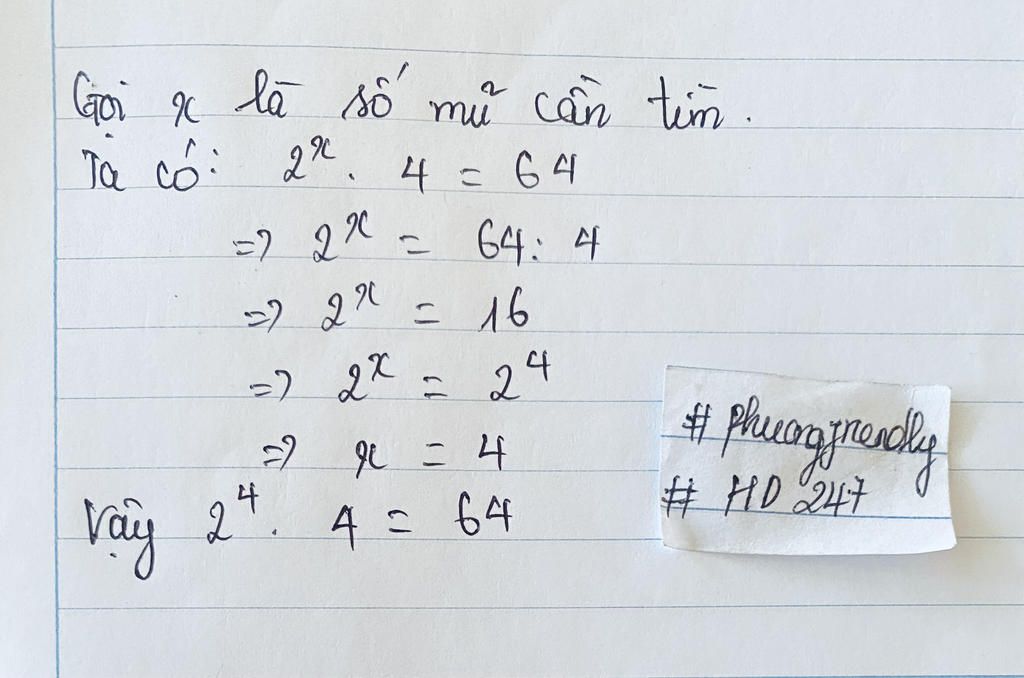 Gọi x là số mũ cần tìm.
Ta có: 2^x . 4 = 64
=> 2^x = 64 : 4
=> 2^x = 16
=> 2^x = 2^4
=> x = 4
Vậy 2^4 . 4 = 64
# phuongfriendly
# HD 247